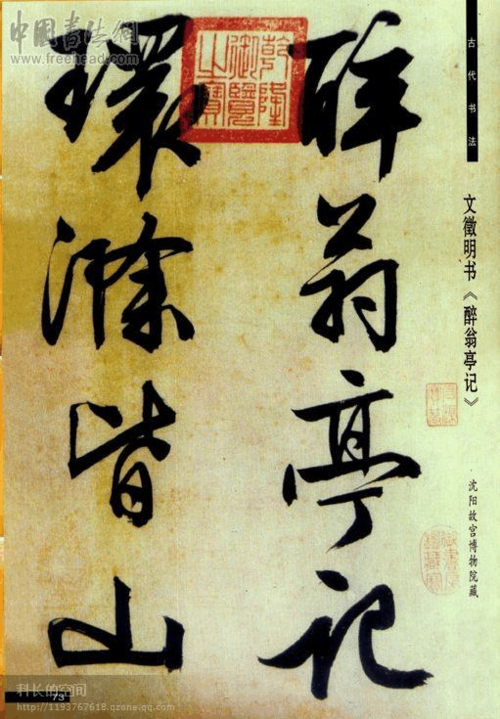 醉翁亭记
環滁皆山
乾隆
御覽
之寶
古代书法
文徵明书《醉翁亭记》
沈阳故宫博物院藏
中国书法網
www.freehead.com
73
科长的空间
http://1193767618.qzone.qq.com